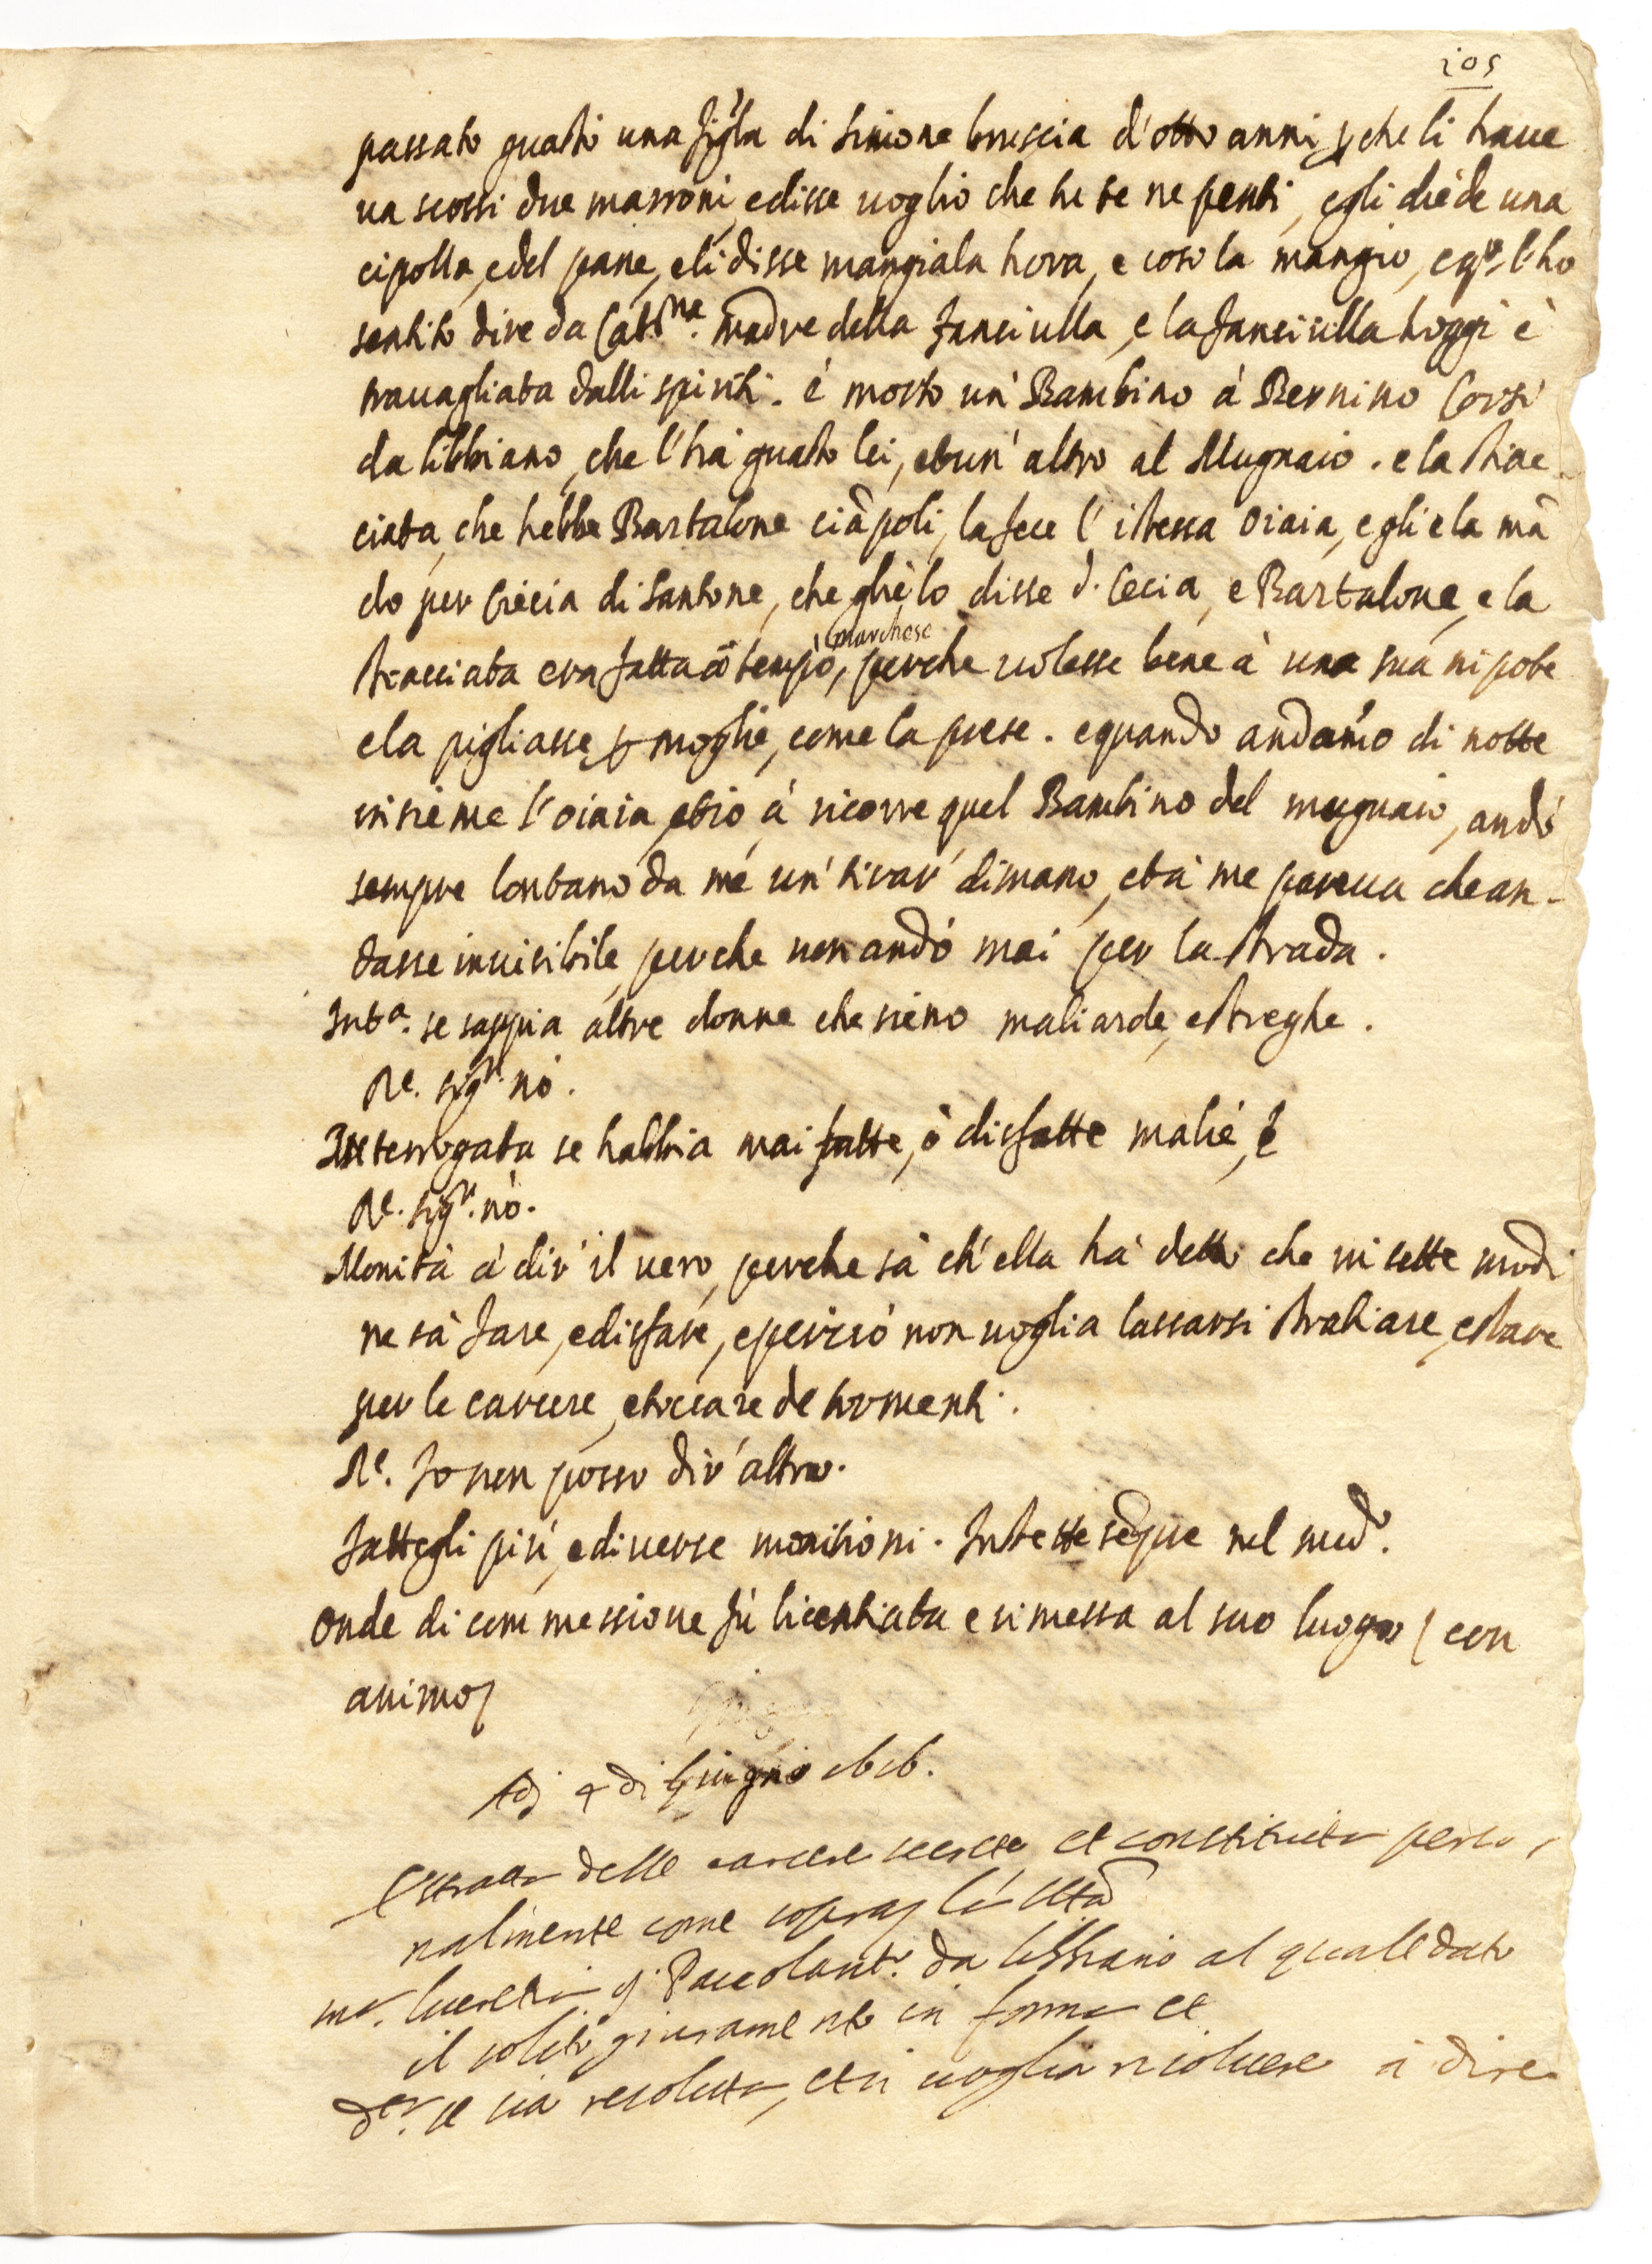 105
passato guastò una figla di Simone bruscia d'otto anni, che li have
va scossi due marroni, e disse voglio che tu te ne penti, e gli diede una
cipolla, e del pane, e li disse mangiala hora, e così la mangiò, e q.º l'ho
sentito dire da Cat.na madre della fanciulla, e la fanciulla hoggi è
travagliata dalli spiriti. è morto un' Bambino à Bernino Corsi
da libbiano, che l'hà guasto lei, et un' altro al Mugnaio. e la stiac-
ciata, che hebbe Bartalone ciāpoli, la fece l'istessa Oiaia, e gli e la mā
dò per Crecia di Santone, che glie lo disse d. Cecia, e Bartalone, e la
stiacciata era fatta à tempo,
marchese
perche volesse bene à una sua nipote
e la pigliasse p moglie, come la prese. e quando andamo di notte
insieme l'oiaia, et io à ricorre quel Bambino del mugnaio, andò
sempre lontano da me un' tirar' di mano, et à me pareva che an-
dasse invisibile, perche non andò mai per la strada.
Int.a se sappia altre donne che sieno maliarde, e streghe.
R.e sig.r nò.
Interrogata se habbia mai fatte, ò disfatte malie, è
R.e sig.r nò.
Monita à dir' il vero, perche sà ch'ella hà detto che in sette modi
ne sà fare, e disfare, e perciò non voglia lassarsi straliare, e stare
per le carcere, e toccare de tormenti.
R.e Io non posso dir' altro.
Fattegli più, e diverse monitioni. Intette sēpre nel med.º
Onde di commessione fù licentiata e rimessa al suo luogo (con
animo)
Adj 4 di Giugno
Estratta delle carcere secrete et constituita perso,
nalmente come sopra
m.a Lucretia q. Paccolant.º da libbiano al quale dato
il solito giuramento in forma et
se sia resoluta, et si voglia risolvere à dire